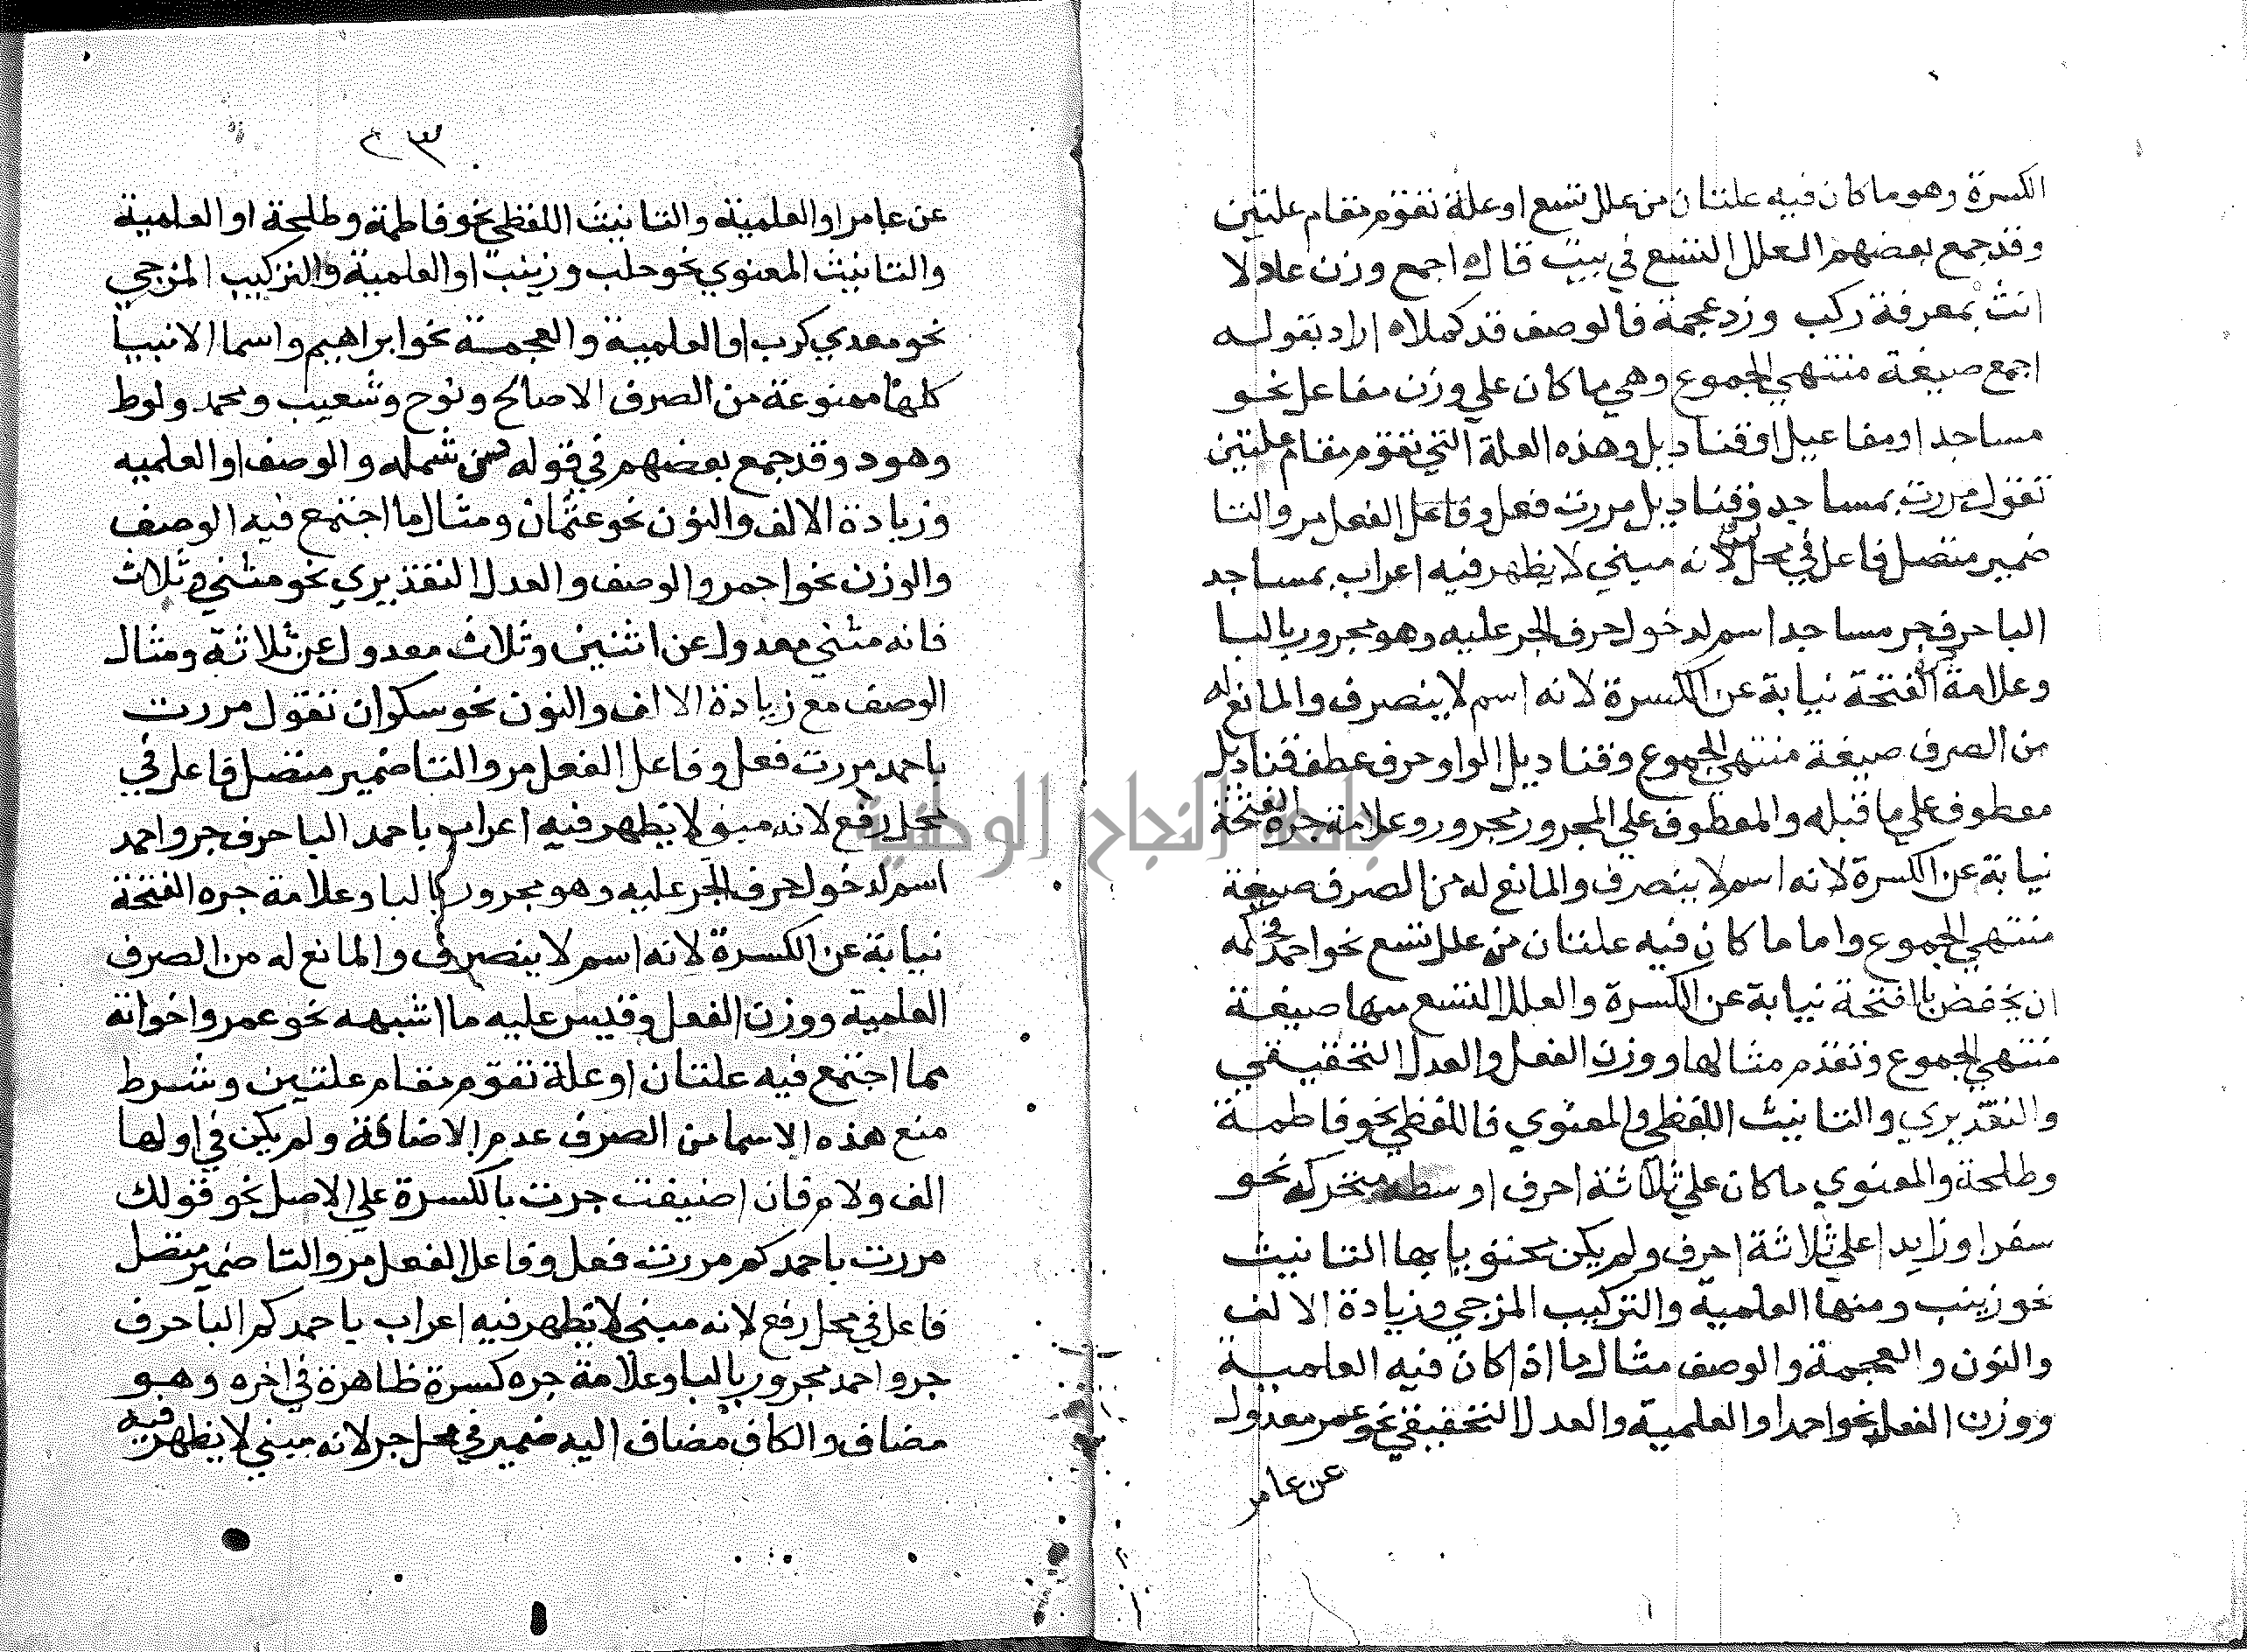 الكسرة وهو ما كان فيه علتان من علل تسع او علة تقوم مقام علتين
وقد جمع بعضهم العلل التسع في بيت قال اجمع وزن عادلا
انث بمعرفة ركب وزد عجمة فالوصف قد كملا اراد بقوله
اجمع صيغة منتهي الجموع وهي ما كان علي وزن مفاعل نحو
مساجد او مفاعيل او قناديل وهذه العلة التي تقوم مقام علتين
تقول مررت بمساجد وقناديل مررت فعل وفاعل الفعل مر والتا
ضمير متصل فاعل في محل لانه مبني لا يظهر فيه اعراب بمساجد
البا حرف جر مساجد اسم لدخول حرف الجر عليه وهو مجرور بالبا
وعلامة الفتحة نيابة عن الكسرة لانه اسم لا ينصرف والمانع له
من الصرف صيغة منتهي الجموع وقناديل الواو حرف عطف قناديل
معطوف علي ما قبله والمعطوف علي المجرور مجرور وعلامة جره الفتحة
نيابة عن الكسرة لانه اسم لا ينصرف والمانع له من الصرف صيغة
منتهي الجموع واما ما كان فيه علتان من علل تسع نحو احمد
ان يخفض بالفتحة نيابة عن الكسرة والعلل التسع منها صيغة
منتهي الجموع وتقدم مثالها ووزن الفعل والعدل التحقيقي
والتقديري والتانيث اللفظي والمعنوي فاللفظي نحو فاطمة
وطلحة والمعنوي ما كان علي ثلاثة احرف اوسطه متحركه نحو
سفر او زايد اعلي ثلاثة احرف ولم يكن مختوما بها التانيث
نحو زينب ومنها العلمية والتركيب المزجي وزيادة الالف
والنون والعجمة والوصف مثال ما اذا كان فيه العلمية
ووزن الفعل نحو احمد او العلمية والعدل التحقيقي نحو عمر معدول
عن عامر
جامعة النجاح الوطنية
٢٣
عن عامر او العلمية والتانيث اللفظي نحو فاطمة وطلحة او العلمية
والتانيث المعنوي نحو حلب وزينب او العلمية والتركيب المزجي
نحو معدي كرب او العلمية والعجمة نحو ابراهيم واسما الانبيا
كلها ممنوعة من الصرف الا صالح ونوح وشعيب ومحمد ولوط
وهود وقد جمع بعضهم في قوله صن شمله والوصف او العلميه
وزيادة الالف والنون نحو عثمان ومثال ما اجتمع فيه الوصف
والوزن نحو احمر والوصف والعدل التقديري نحو مثني وثلاث
فانه مثني معدول عن اثنين وثلاث معدول عن ثلاثة ومثال
الوصف مع زيادة الالف والنون نحو سكران تقول مررت
باحمد مررت فعل وفاعل الفعل مر والتا ضمير متصل فاعل في
محل رفع لانه مبني لا يظهر فيه اعراب باحمد البا حرف جر واحمد
اسم لدخول حرف الجر عليه وهو مجرور بالبا وعلامة جره الفتحة
نيابة عن الكسرة لانه اسم لا ينصرف والمانع له من الصرف
العلمية ووزن الفعل وقيس عليه ما اشبهه نحو عمر واخواته
مما اجتمع فيه علتان او علة تقوم مقام علتين وشرط
منع هذه الاسما من الصرف عدم الاضافة ولم يكن في اولها
الف ولام فان اضيفت جرت بالكسرة علي الاصل نحو قولك
مررت باحمدكم مررت فعل وفاعل الفعل مر والتا ضمير متصل
فاعل في محل رفع لانه مبني لا يظهر فيه اعراب باحمدكم البا حرف
جر واحمد مجرور بالبا وعلامة جره كسرة ظاهرة في اخره وهو
مضاف والكاف مضاف اليه ضمير في محل جر لانه مبني لا يظهر فيه